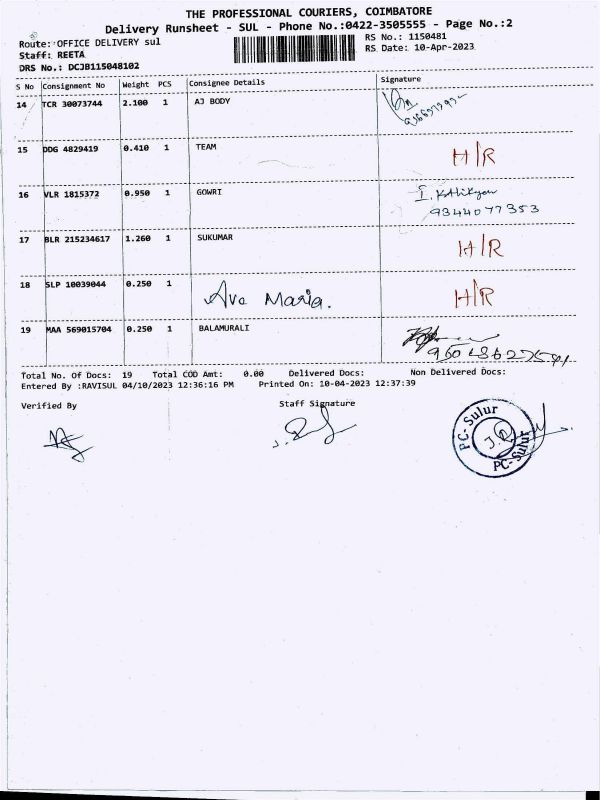 THE PROFESSIONAL COURIERS, COIMBATORE
Delivery Runsheet - SUL - Phone No.:0422-3505555 - Page No.:2
Route: OFFICE DELIVERY sul
RS No.: 1150481
Staff: REETA
RS Date: 10-Apr-2023
DRS No.: DCJB115048102
S No Consignment No Weight PCS Consignee Details Signature
14 TCR 30073744 2.100 1 AJ BODY
15 DDG 4829419 0.410 1 TEAM H/R
16 VLR 1815372 0.950 1 GOWRI
9344077353
17 BLR 215234617 1.260 1 SUKUMAR H/R
18 SLP 10039044 0.250 1 Ave Maria. H/R
19 MAA 569015704 0.250 1 BALAMURALI
Total No. Of Docs: 19 Total COD Amt: 0.00 Delivered Docs: Non Delivered Docs:
Entered By :RAVISUL 04/10/2023 12:36:16 PM Printed On: 10-04-2023 12:37:39
Verified By Staff Signature
PC-Sulur
PC-Sulur